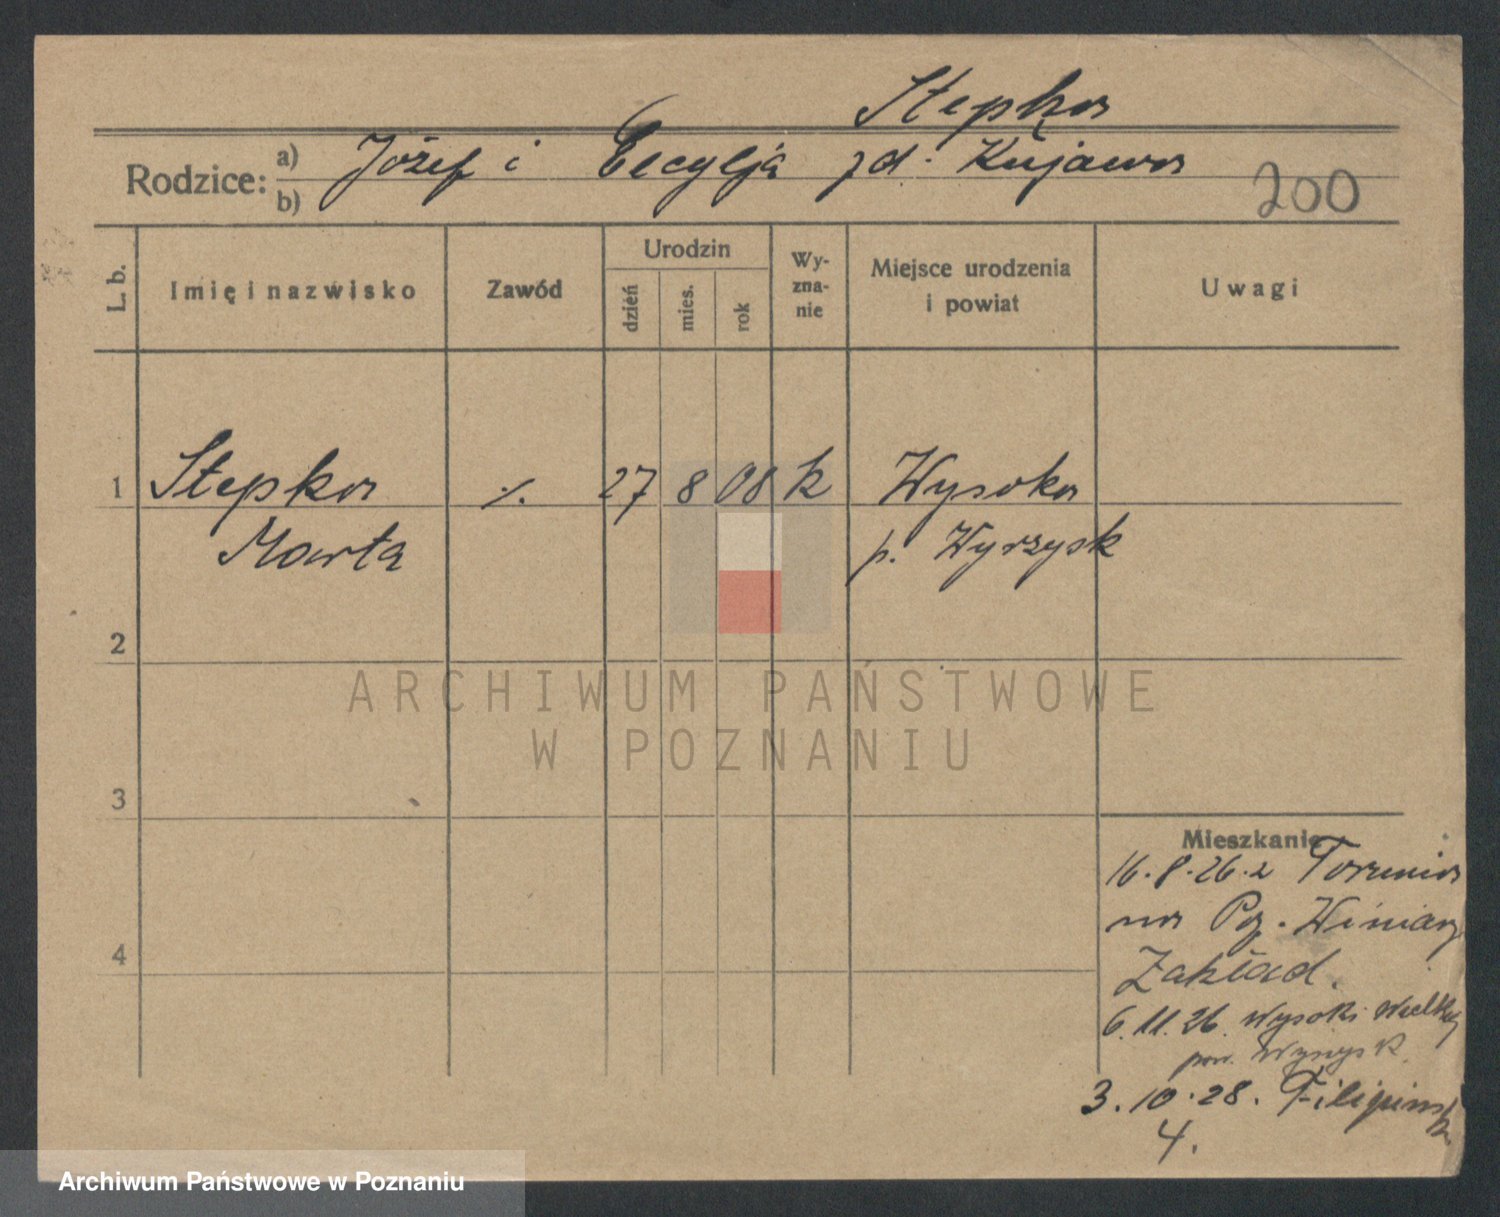 Stepka
Rodzice: a) Józef i Cecylja zd. Kujawa
b)
200
L. b.
Imię i nazwisko
Zawód
Urodzin
dzień
mies.
rok
Wy-
zna-
nie
Miejsce urodzenia
i powiat
Uwagi
1 Stepka ./. 27 8 08 k Wysoka
Marta p. Wyrzysk
2
3
4
Mieszkanie
16.8.26. z Torunia
na Poz. Winiary
Zakład.
6.11.26. Wysoki
pow. Wyrzysk
3.10.28.
4.
ARCHIWUM PAŃSTWOWE
W POZNANIU
Archiwum Państwowe w Poznaniu